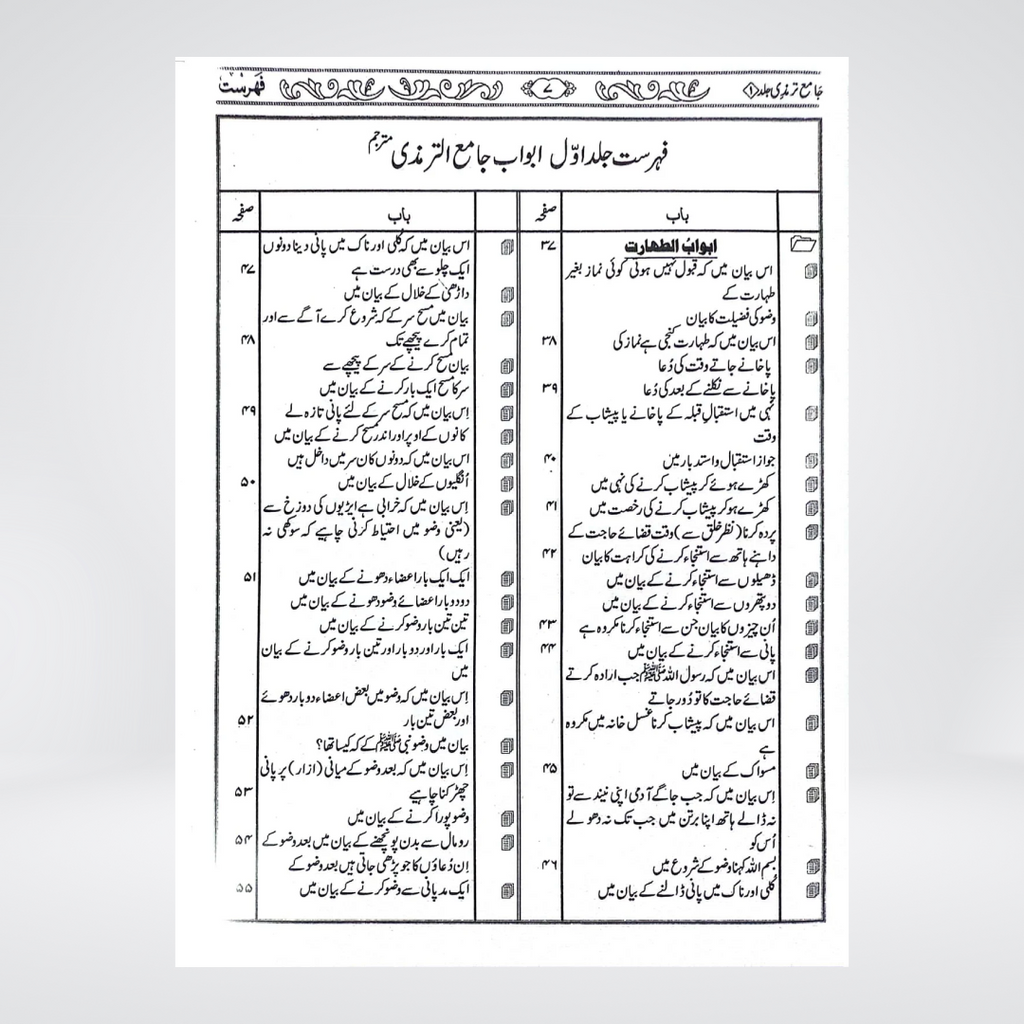 جامع ترمذی جلد ۱
۷
فہرست
فہرست جلد اوّل ابواب جامع الترمذی مترجم
باب
صفحہ
ابوابُ الطہارت ۳۷
اس بیان میں کہ قبول نہیں ہوتی کوئی نماز بغیر
طہارت کے
وضو کی فضیلت کا بیان
اس بیان میں کہ طہارت کنجی ہے نماز کی ۳۸
پاخانے جاتے وقت کی دُعا
پاخانے سے نکلنے کے بعد کی دُعا ۳۹
نہی میں استقبالِ قبلہ کے پاخانے یا پیشاب کے
وقت
جواز استقبال و استدبار میں ۴۰
کھڑے ہوئے کر پیشاب کرنے کی نہی میں
کھڑے ہو کر پیشاب کرنے کی رخصت میں ۴۱
پردہ کرنا (نظر خلق سے) وقت قضائے حاجت کے
داہنے ہاتھ سے استنجاء کرنے کی کراہت کا بیان ۴۲
ڈھیلوں سے استنجاء کرنے کے بیان میں
دو پتھروں سے استنجاء کرنے کے بیان میں
اُن چیزوں کا بیان جن سے استنجاء کرنا مکروہ ہے ۴۳
پانی سے استنجاء کرنے کے بیان میں ۴۴
اس بیان میں کہ رسول اللہ ﷺ جب ارادہ کرتے
قضائے حاجت کا تو دُور جاتے
اس بیان میں کہ پیشاب کرنا غسل خانہ میں مکروہ
ہے
مسواک کے بیان میں ۴۵
اِس بیان میں کہ جب جاگے آدمی اپنی نیند سے تو
نہ ڈالے ہاتھ اپنا برتن میں جب تک نہ دھولے
اُس کو
بسم اللہ کہنا وضو کے شروع میں ۴۶
کُلی اور ناک میں پانی ڈالنے کے بیان میں
باب
صفحہ
اس بیان میں کہ کُلی اور ناک میں پانی دینا دونوں
ایک چلو سے بھی درست ہے ۴۷
داڑھی کے خلال کے بیان میں
بیان میں مسح سر کے کہ شروع کرے آگے سے اور
تمام کرے پیچھے تک ۴۸
بیان مسح کرنے کے سر کے پیچھے سے
سر کا مسح ایک بار کرنے کے بیان میں
اِس بیان میں کہ مسح سر کے لئے پانی تازہ لے ۴۹
کانوں کے اوپر اور اندر مسح کرنے کے بیان میں
اس بیان میں کہ دونوں کان سر میں داخل ہیں
اُنگلیوں کے خلال کے بیان میں ۵۰
اِس بیان میں کہ خرابی ہے ایڑیوں کی دوزخ سے
(یعنی وضو میں احتیاط کرنی چاہیے کہ سوکھی نہ
رہیں)
ایک ایک بار اعضاء دھونے کے بیان میں ۵۱
دو دو بار اعضائے وضو دھونے کے بیان میں
تین تین بار وضو کرنے کے بیان میں
ایک بار اور دو بار اور تین بار وضو کرنے کے بیان
میں
اِس بیان میں کہ وضو میں بعض اعضاء دو بار دھوئے
اور بعض تین بار ۵۲
بیان میں وضو نبی ﷺ کے کہ کیسا تھا؟
اِس بیان میں کہ بعد وضو کے میانی (ازار) پر پانی
چھڑکنا چاہیے ۵۳
وضو پورا کرنے کے بیان میں
رومال سے بدن پونچھنے کے بیان میں بعد وضو کے ۵۴
اِن دُعاؤں کا جو پڑھی جاتی ہیں بعد وضو کے
ایک مد پانی سے وضو کرنے کے بیان میں ۵۵